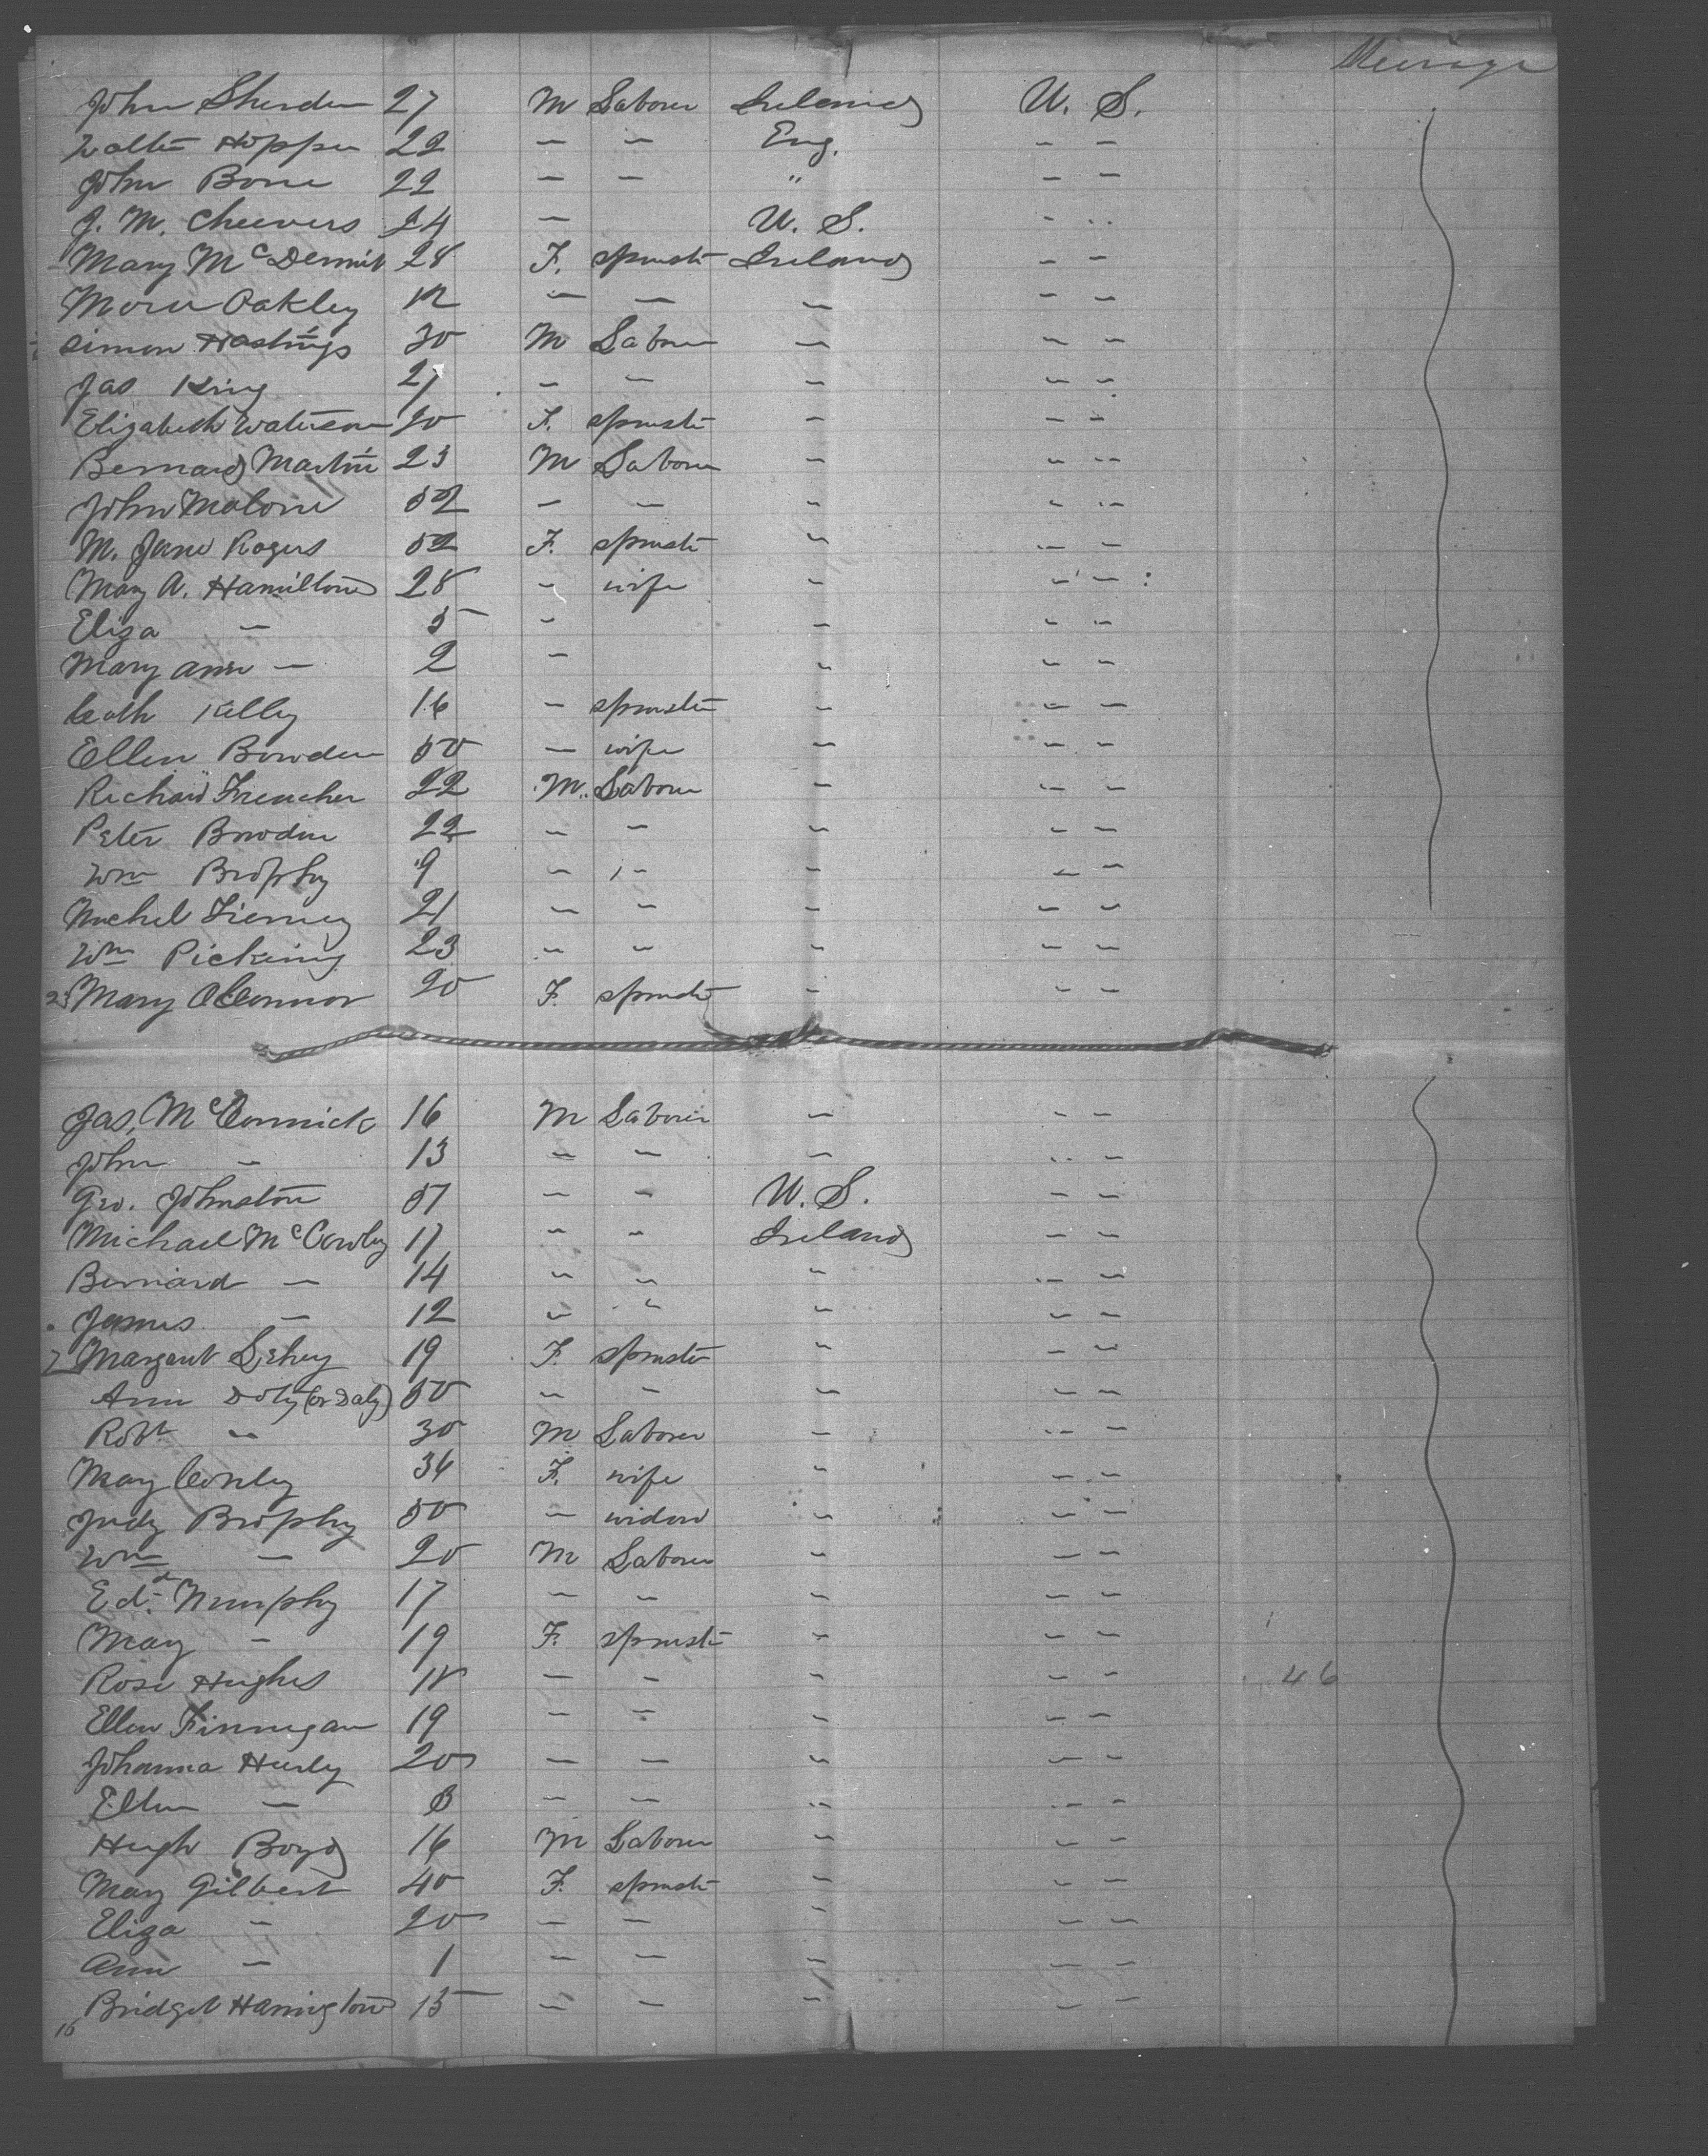 John Sherden 27 M Laborer Ireland U. S.
Walter Hopper 22 — — Eng. - -
John Bone 22 — — " - -
J. M. Cheevers 24 — U. S. - -
Mary McDermit 28 F. spinstr Ireland - -
Oakley 12 — — — - -
Simon Hastings 30 M Laborer — - -
Jas King 27 - - - - -
Elizabeth Waterson 20 F. spinstr - - -
Bernard Martin 23 M Laborer - - -
John Malone 52 - - - - -
M. Jane Rogers 52 F. spinstr - - -
Mary A. Hamilton 28 - wife - - -
Eliza - 5 - - - -
Mary Ann - 2 - - - -
Cath Killy 16 - spinster - - -
Ellen Bowden 50 - wife - - -
Richard 22 M. Laborer - - -
Peter Bowden 22 - - - - -
Wm Brophy 9 - - - - -
Michel Tierney 21 - - - - -
Wm Pickering 23 - - - - -
23 Mary OConnor 20 F. spinstr - - -
Jas. McCormick 16 M Laborer - - -
John - 13 - - - - -
Geo. Johnston 57 - - U. S. - -
Michael McCowley 17 - - Ireland - -
Bernard - 14 - - - - -
James - 12 - - - - -
7 Margaret Lehey 19 F. spinstr - - -
Ann Doty (or Daly) 50 - - - - -
Robt - 30 M Laborer - - -
Mary Conley 36 F. wife - - -
Judy Brophy 50 - widow - - -
Wm - 20 M Laborer - - -
Edd. Murphy 17 - - - - -
Mary - 19 F. spinstr - - -
Rose Hughes 18 - - - - - 46
Ellen Finnegan 19 - - - - -
Johanna Hurly 20 - - - - -
Ellen - - - - - -
Hugh Boyd 16 M Laborer - - -
Mary Gilbert 40 F. spinstr - - -
Eliza - 20 - - - - -
Ann - 1 - - - - -
16 Bridget Harrington 15 - - - - -